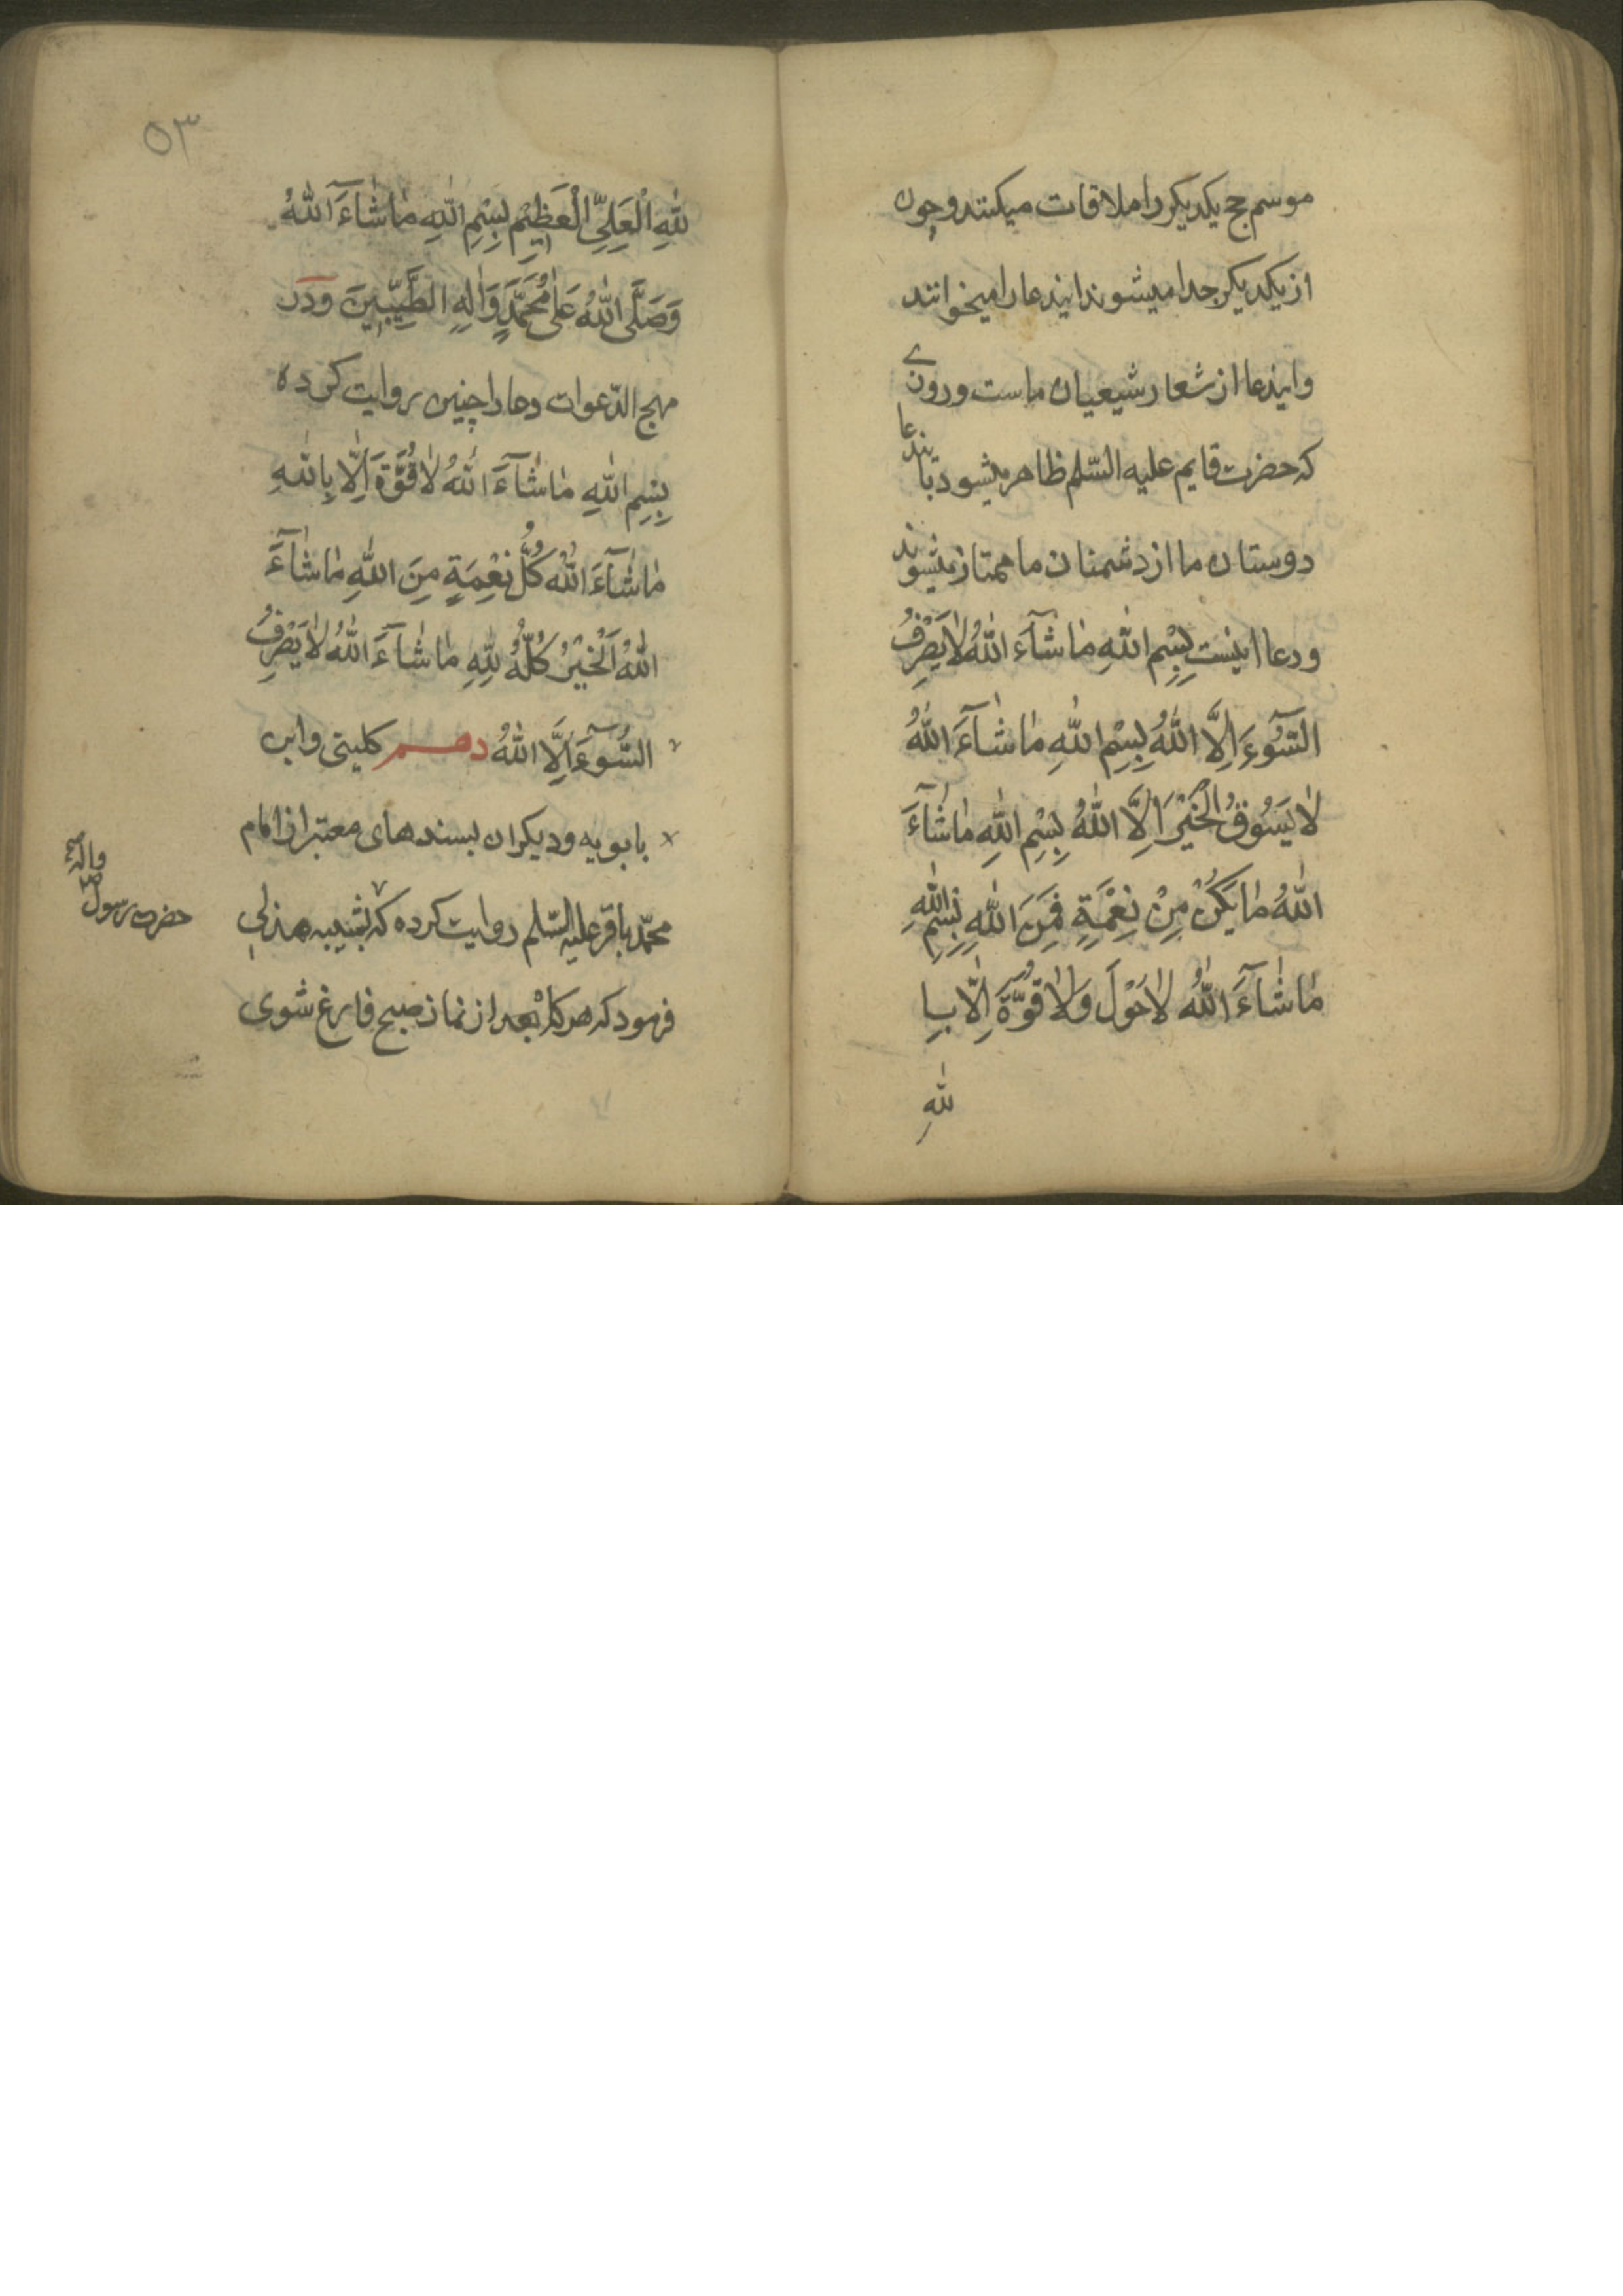 موسم حج یکدیکر را ملاقات میکنند و چون
از یکدیکر جدا میشوند ایندعا را میخوانند
و ایندعا از شعار شیعیان ماست و روزی
که حضرت قایم علیه السّلم ظاهر میشود باین دعا
دوستان ما از دشمنان ما ممتاز میشوند
و دعا اینست بِسْمِ اللّٰهِ مٰا شٰآءَ اللّٰهُ لٰا یَصْرِفُ
السُّوٓءَ اِلَّا اللّٰهُ بِسْمِ اللّٰهِ مٰا شٰآءَ اللّٰهُ
لٰا یَسُوقُ الْخَیْرَ اِلَّا اللّٰهُ بِسْمِ اللّٰهِ مٰا شٰآءَ
اللّٰهُ مٰا یَکُنْ مِنْ نِعْمَةٍ فَمِنَ اللّٰهِ بِسْمِ اللّٰهِ
مٰا شٰآءَ اللّٰهُ لٰا حَوْلَ وَلٰا قُوَّةَ اِلّٰا بِا
للّٰهِ
٥٣
للّٰهِ الْعَلِیِّ الْعَظِیْمِ بِسْمِ اللّٰهِ مٰا شٰآءَ اللّٰهُ
وَصَلَّی اللّٰهُ عَلٰی مُحَمَّدٍ وَاٰلِهِ الطَّیِّبِیْنَ و در
مهج الدّعوات دعا را چنین روایت کرده
بِسْمِ اللّٰهِ مٰا شٰآءَ اللّٰهُ لٰا قُوَّةَ اِلّٰا بِاللّٰهِ
مٰا شٰآءَ اللّٰهُ کُلُّ نِعْمَةٍ مِنَ اللّٰهِ مٰا شٰآءَ
اللّٰهُ اَلْخَیْرُ کُلُّهُ لِلّٰهِ مٰا شٰآءَ اللّٰهُ لٰا یَصْرِفُ
السُّوٓءَ اِلَّا اللّٰهُ دهم کلینی و ابن
بابویه و دیکران بسندهای معتبر از امام
محمّد باقر علیه السّلم روایت کرده که بشیبه هذلی
فرمود که هرکاه بعد از نماز صبح فارغ شوی
حضرت رسول ص واله